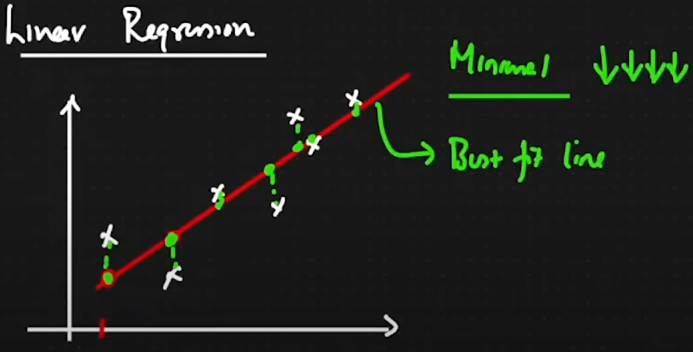 Linear Regression
Minimal ↓↓↓↓
Best fit line